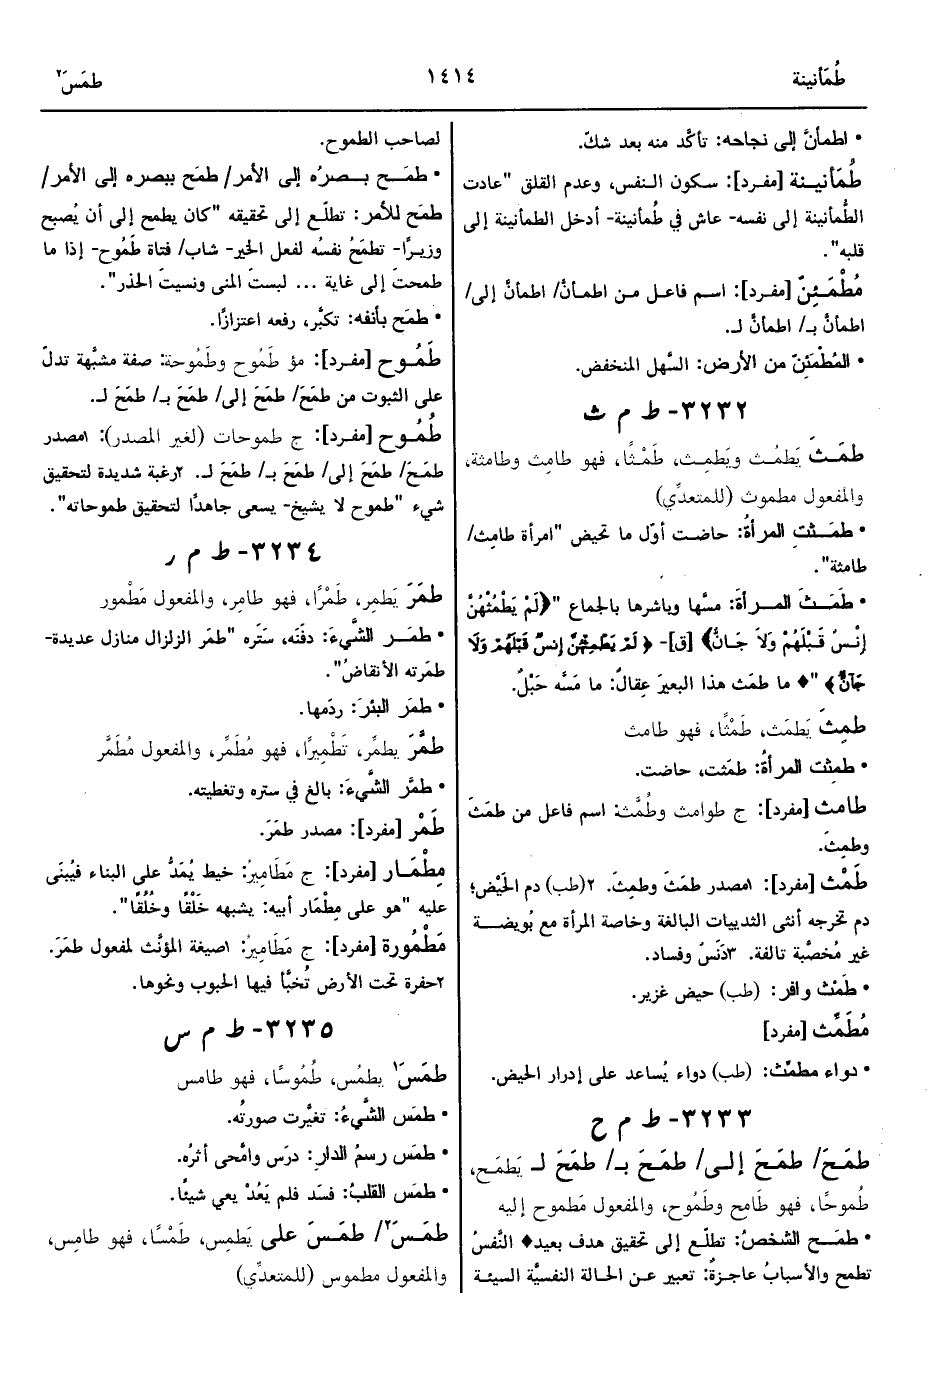 طُمَأنينة
١٤١٤
طمَسَ٢
• اطمأنَّ إلى نجاحه: تأكّد منه بعد شكّ.
طُمَأنينة [مفرد]: سكون النفس، وعدم القلق "عادت
الطُّمأنينة إلى نفسه- عاش في طُمأنينة- أدخل الطمأنينة إلى
قلبه".
مُطْمَئِنّ [مفرد]: اسم فاعل من اطمأنَّ/ اطمأنَّ إلى/
اطمأنَّ بـ/ اطمأنَّ لـ.
• المُطْمَئنّ من الأرض: السَّهل المنخفض.
٣٢٣٢- ط م ث
طمَثَ يَطمُث ويَطمِث، طَمْثًا، فهو طامِث وطامثة،
والمفعول مطموث (للمتعدِّي)
• طمَثتِ المرأةُ: حاضت أوّل ما تحيض "امرأة طامِث/
طامثة".
• طمَثَ المرأةَ: مسَّها وباشرها بالجماع "﴿لَمْ يَطْمُثْهُنَّ
إِنْسٌ قَبْلَهُمْ وَلاَ جَانٌّ﴾ [ق]- ﴿ لَمْ يَطْمِثْهُنَّ إِنسٌ قَبْلَهُمْ وَلَا
جَآنٌّ﴾ "♦ ما طمَث هذا البعيرَ عِقالٌ: ما مَسَّه حَبْلٌ.
طمِثَ يَطمَث، طَمْثًا، فهو طامث
• طمِثت المرأةُ: طمَثت، حاضت.
طامث [مفرد]: ج طوامث وطُمَّث: اسم فاعل من طمَثَ
وطمِثَ.
طَمْث [مفرد]: ١مصدر طمَثَ وطمِثَ. ٢(طب) دم الحَيْض؛
دم تخرجه أنثى الثدييات البالغة وخاصة المرأة مع بُويضة
غير مُخصَّبة تالفة. ٣دَنَسٌ وفساد.
• طَمْث وافر: (طب) حيض غزير.
مُطَمِّث [مفرد]
• دواء مطمِّث: (طب) دواء يُساعد على إدرار الحيض.
٣٢٣٣- ط م ح
طمَحَ/ طمَحَ إلى/ طمَحَ بـ/ طمَحَ لـ يَطمَح،
طُموحًا، فهو طَامِح وطَمُوح، والمفعول مَطموح إليه
• طمَح الشخصُ: تطلّع إلى تحقيق هدف بعيد♦ النَّفسُ
تطمح والأسبابُ عاجزةٌ: تعبير عن الحالة النفسيَّة السيئة
لصاحب الطموح.
• طمَح بصرُه إلى الأمر/ طمَح ببصره إلى الأمر/
طمَح للأمر: تطلّع إلى تحقيقه "كان يطمح إلى أن يُصبح
وزيرًا- تطمَحُ نفسُه لفعل الخير- شاب/ فتاة طَمُوح- إذا ما
طمحتَ إلى غاية ... لبستَ المنى ونسيتَ الحذر".
• طمَح بأنفه: تكبَّر، رفعه اعتزازًا.
طَمُوح [مفرد]: مؤ طَمُوح وطَمُوحة: صفة مشبَّهة تدلّ
على الثبوت من طمَحَ/ طمَحَ إلى/ طمَحَ بـ/ طمَحَ لـ.
طُمُوح [مفرد]: ج طموحات (لغير المصدر): ١مصدر
طمَحَ/ طمَحَ إلى/ طمَحَ بـ/ طمَحَ لـ. ٢رغبة شديدة لتحقيق
شيء "طموح لا يشيخ- يسعى جاهدًا لتحقيق طموحاته".
٣٢٣٤- ط م ر
طمَرَ يَطمِر، طَمْرًا، فهو طامِر، والمفعول مَطْمور
• طمَر الشَّيءَ: دفَنَه، سَتَره "طمَر الزلزال منازل عديدة-
طمَرته الأنقاضُ".
• طمَر البئرَ: ردَمها.
طمَّرَ يطمِّر، تَطْمِيرًا، فهو مُطَمِّر، والمفعول مُطَمَّر
• طمَّر الشَّيءَ: بالغ في ستره وتغطيته.
طَمْر [مفرد]: مصدر طمَرَ.
مِطْمَار [مفرد]: ج مَطَامِيرُ: خيط يُمَدُّ على البناء فيُبنَى
عليه "هو على مِطْمَار أبيه: يشبهه خَلْقًا وخُلُقًا".
مَطْمُورة [مفرد]: ج مَطَامِيرُ: ١صيغة المؤنَّث لمفعول طمَرَ.
٢حفرة تحت الأرض تُخبَّأ فيها الحبوب ونحوها.
٣٢٣٥- ط م س
طمَسَ١ يطمُس، طُمُوسًا، فهو طامس
• طمَس الشَّيءُ: تغيَّرت صورتُه.
• طمَس رسمُ الدار: درَس وامَّحى أثرُه.
• طمَس القلبُ: فسَد فلم يَعُدْ يعي شيئًا.
طمَسَ٢/ طمَسَ على يَطمِس، طَمْسًا، فهو طامِس،
والمفعول مطموس (للمتعدِّي)